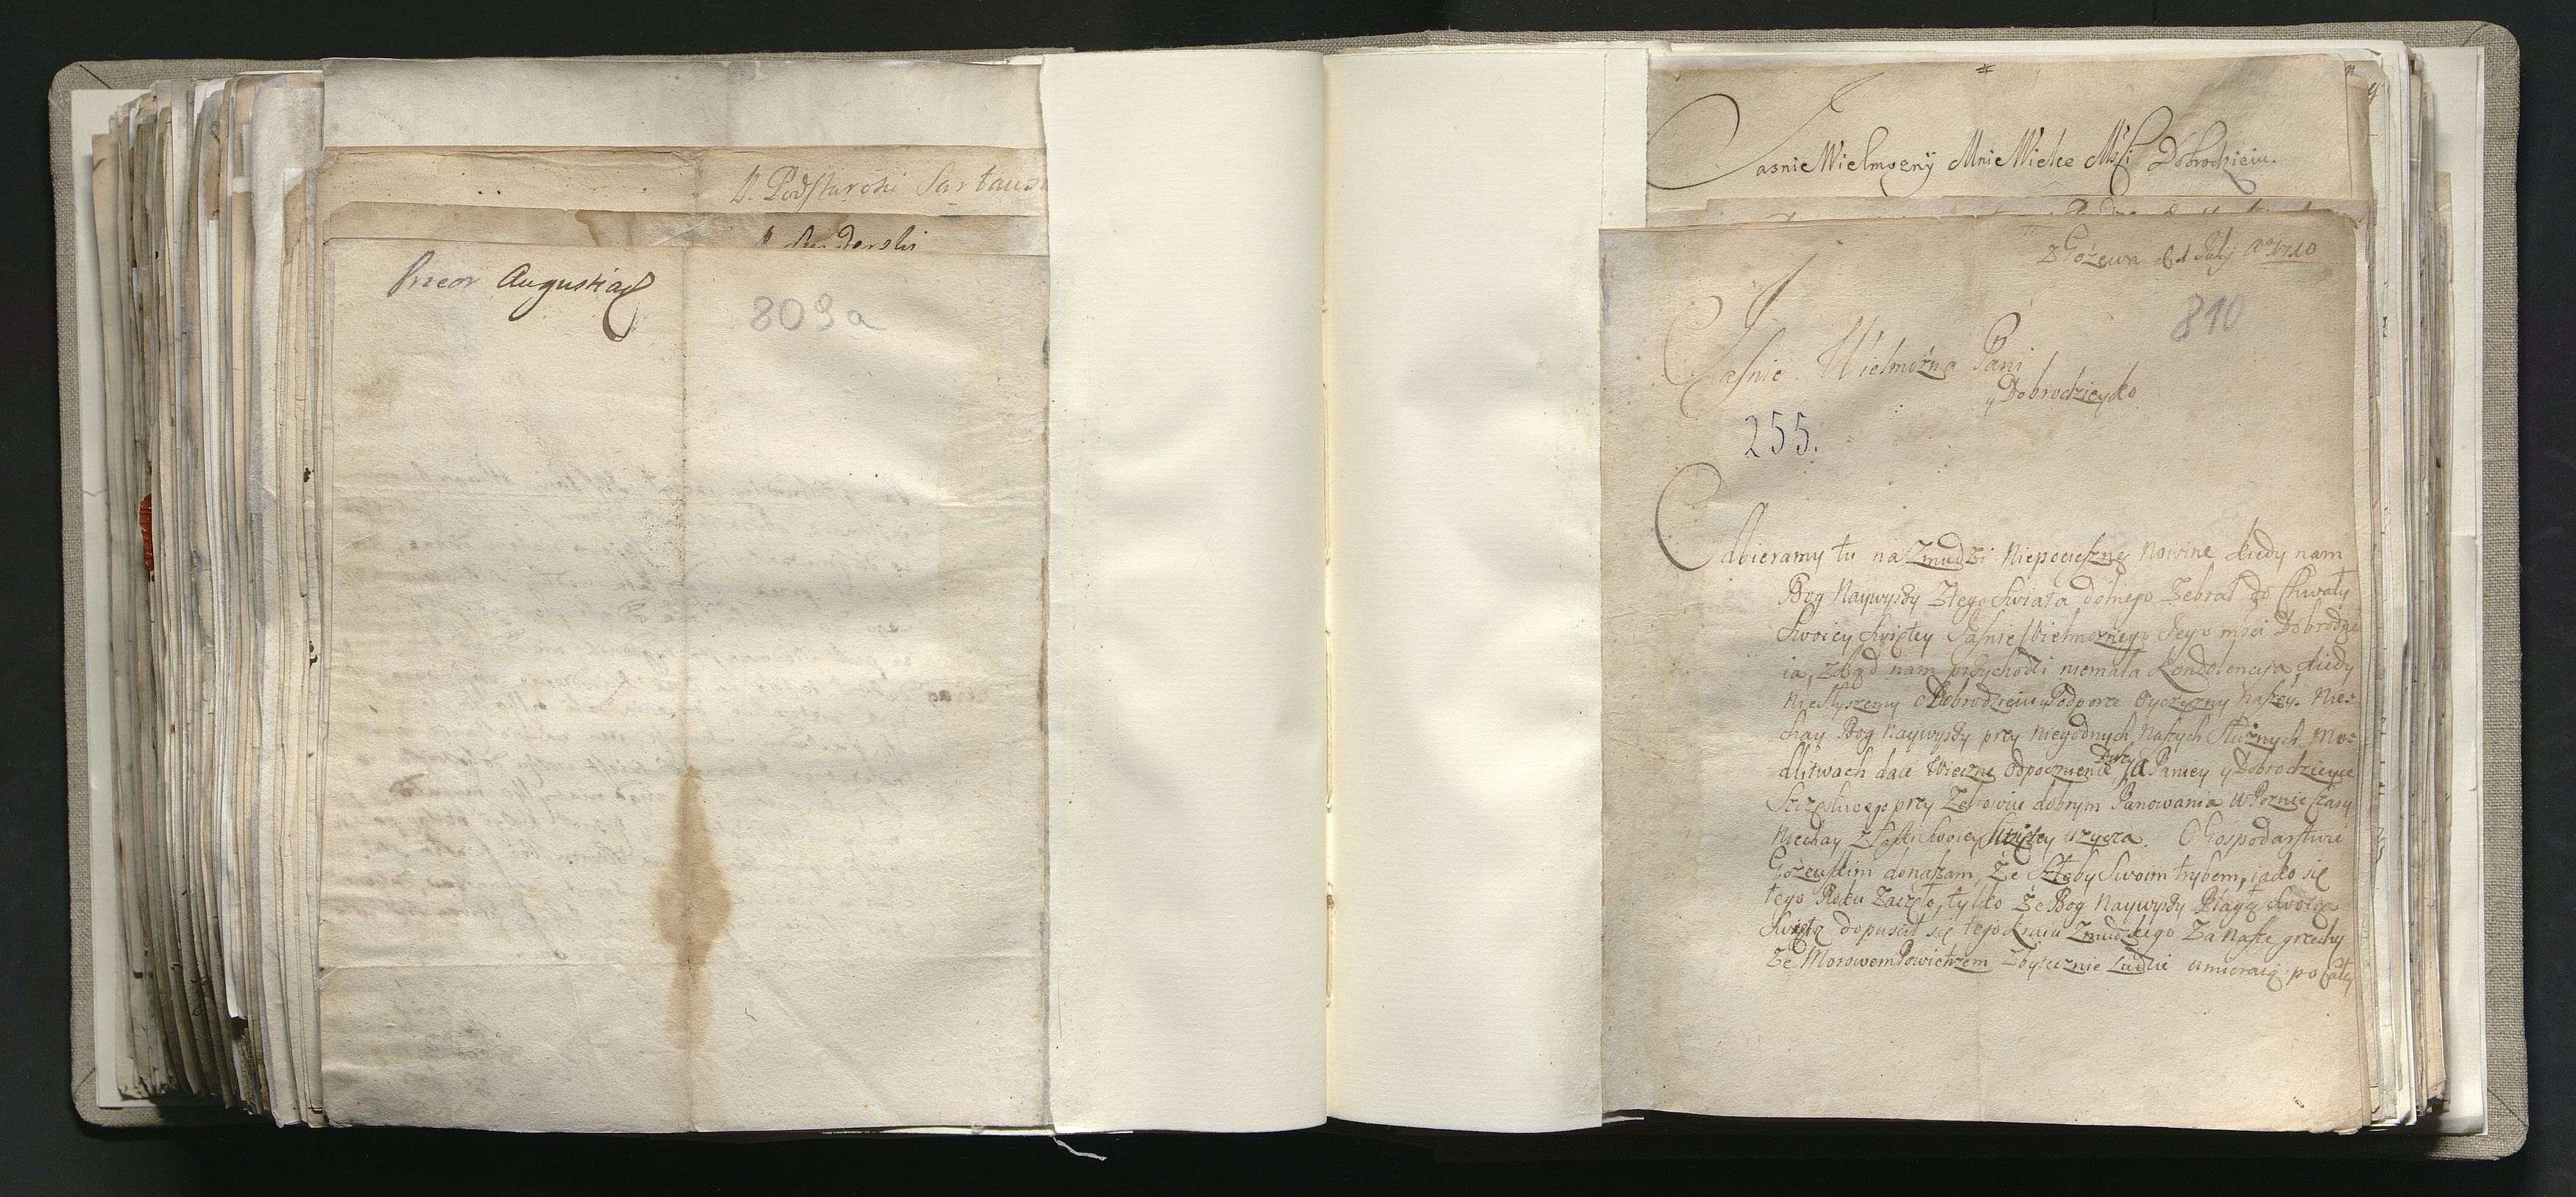 W. Podstarosci
Przeor Augustian
809a
JasnieWielmozny MnieWielce Mści Dobrodzieiu.
z Gożewa d 1 July Ao 1710
810
Jasnie Wielmożna Pani
y Dobrodzieyko
255.
Odbieramy tu na Zmudzi Niepocieszną Nowinę kiedy nam
Bog Naywyszy Ztego Swiata dolnego Zebrał do Chwały
Swoiey Swiętey JasnieWielmoznego Jego mści Dobrodzie
ia, zkąd nam przychodzi niemała Kondolencyja, kiedy
Niesłyszemy o Dobrodzieiu y Podporce Oyczyzny naszey. Nie=
chay Bog Naywyszy przy Niegodnych Naszych Służnych Mo=
dlitwach daie Wieczne Odpocznienie Duszy, a Paniey y Dobrodzieyce
Szczęsliwego przy Zdrowiu dobrym Panowania w Poznie czasy
Niechay z łaski Swoiey Swiętey uzycza. O Gospodarstwie
Gożewskim donaszam, Ze Szłoby Swoim trybem, iako się
tego Roku Zaczęło, tylko że Bog Naywyszy Plagę Swoię
Swiętą dopuscił się tego kraiu Zmudzkiego Za Nasze grzechy
Ze Morowem Powietrzem Zbytecznie Ludzie umieraią po całey